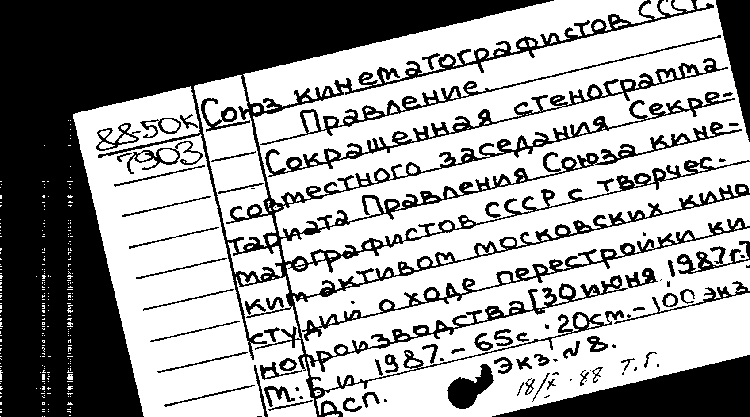 88-50к
7903
Союз кинематографистов СССР.
Правление.
Сокращенная стенограмма
совместного заседания Секре-
тариата Правления Союза кине-
матографистов СССР с творчес-
ким активом московских кино
студий о ходе перестройки ки
нопроизводства [30 июня 1987г.]
М.: Б.и, 1987. - 65с.; 20см. - 100 экз
Дсп. Экз. № 8.
18/X - 88 Т.Г.